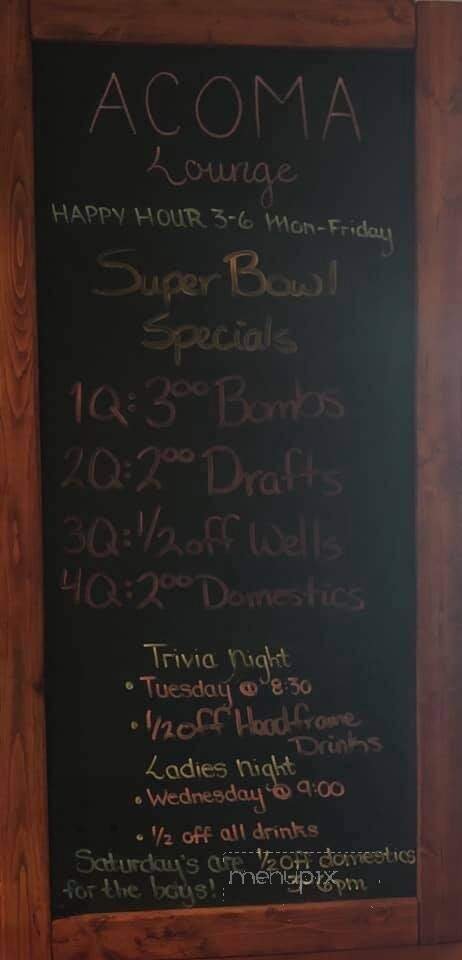 ACOMA
Lounge
HAPPY HOUR 3-6 Mon-Friday
Super Bowl
Specials
1Q: 3⁰⁰ Bombs
2Q: 2⁰⁰ Drafts
3Q: 1/2 off Wells
4Q: 2⁰⁰ Domestics
Trivia Night
• Tuesday @ 8:30
• 1/2 off Headframe
Drinks
Ladies Night
• Wednesday @ 9:00
• 1/2 off all drinks
Saturday's are 1/2 off domestics
for the boys! 3-6pm
menupix